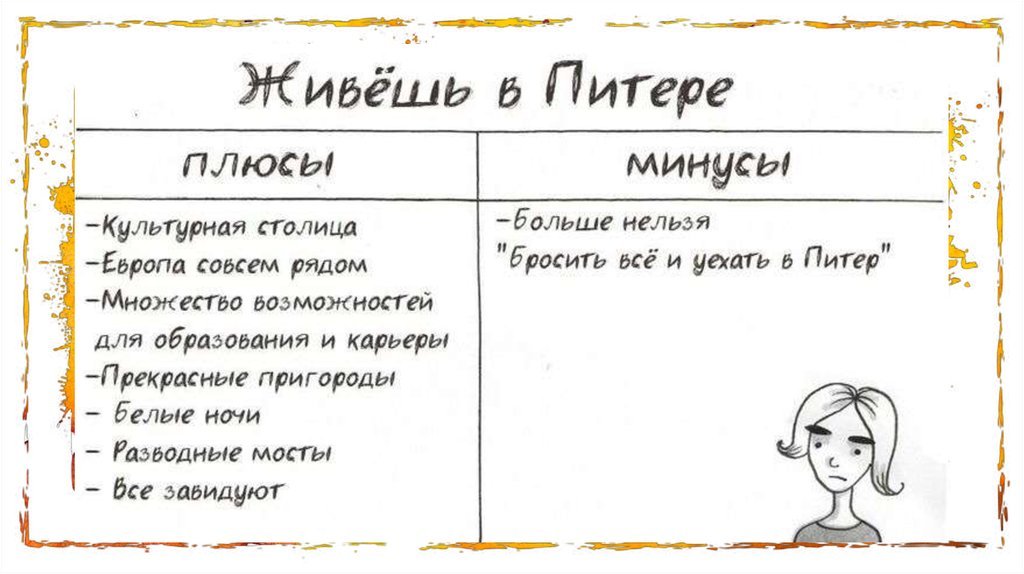 Живёшь в Питере
плюсы
минусы
-Культурная столица
-Европа совсем рядом
-Множество возможностей
для образования и карьеры
-Прекрасные пригороды
- Белые ночи
- Разводные мосты
- Все завидуют
-Больше нельзя
"Бросить всё и уехать в Питер"